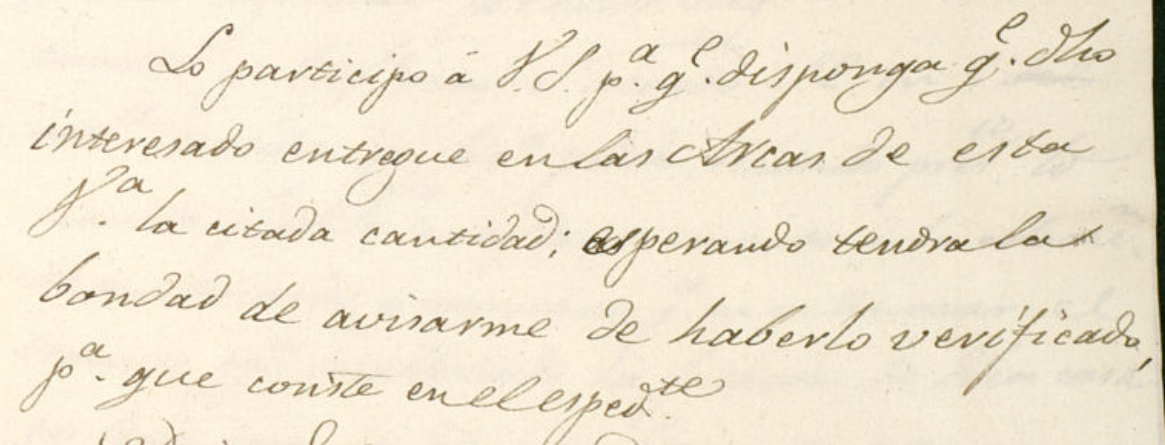 Lo participo á V.S. p.ª q.e disponga q.e dho
interesado entregue en las Arcas de esta
V.ª la citada cantidad; esperando tendra la
bondad de avisarme de haberlo verificado,
p.ª que conste en el esped.te